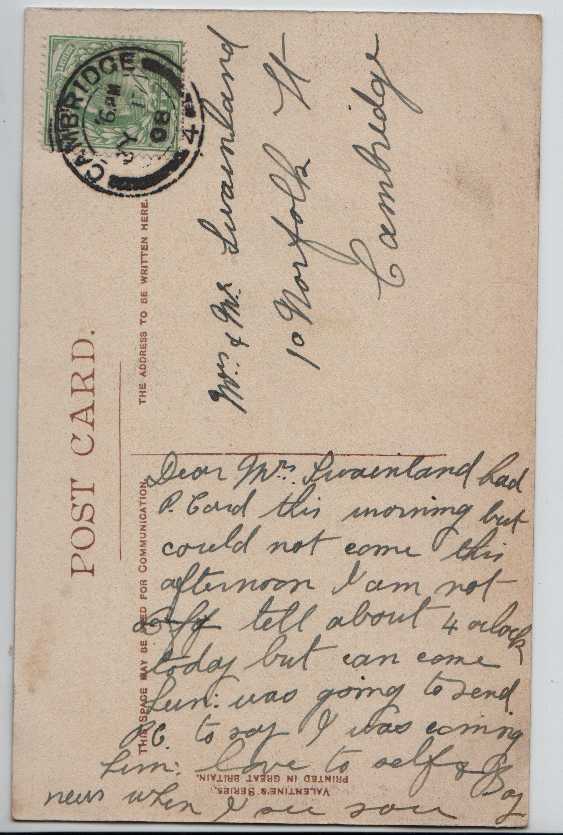 POST CARD.
THE ADDRESS TO BE WRITTEN HERE.
THIS SPACE MAY BE USED FOR COMMUNICATION.
CAMBRIDGE
6 PM
08
4
Mrs & Mr Swainland
10 Norfolk St
Cambridge
Dear Mrs. Swainland had
P. Card this morning but
could not come this
afternoon I am not
off tell about 4 oclock
today but can come
Sun: was going to send
P.C. to say I was coming
Sun: love to self & Boy
news when I see you
VALENTINE'S SERIES.
PRINTED IN GREAT BRITAIN.